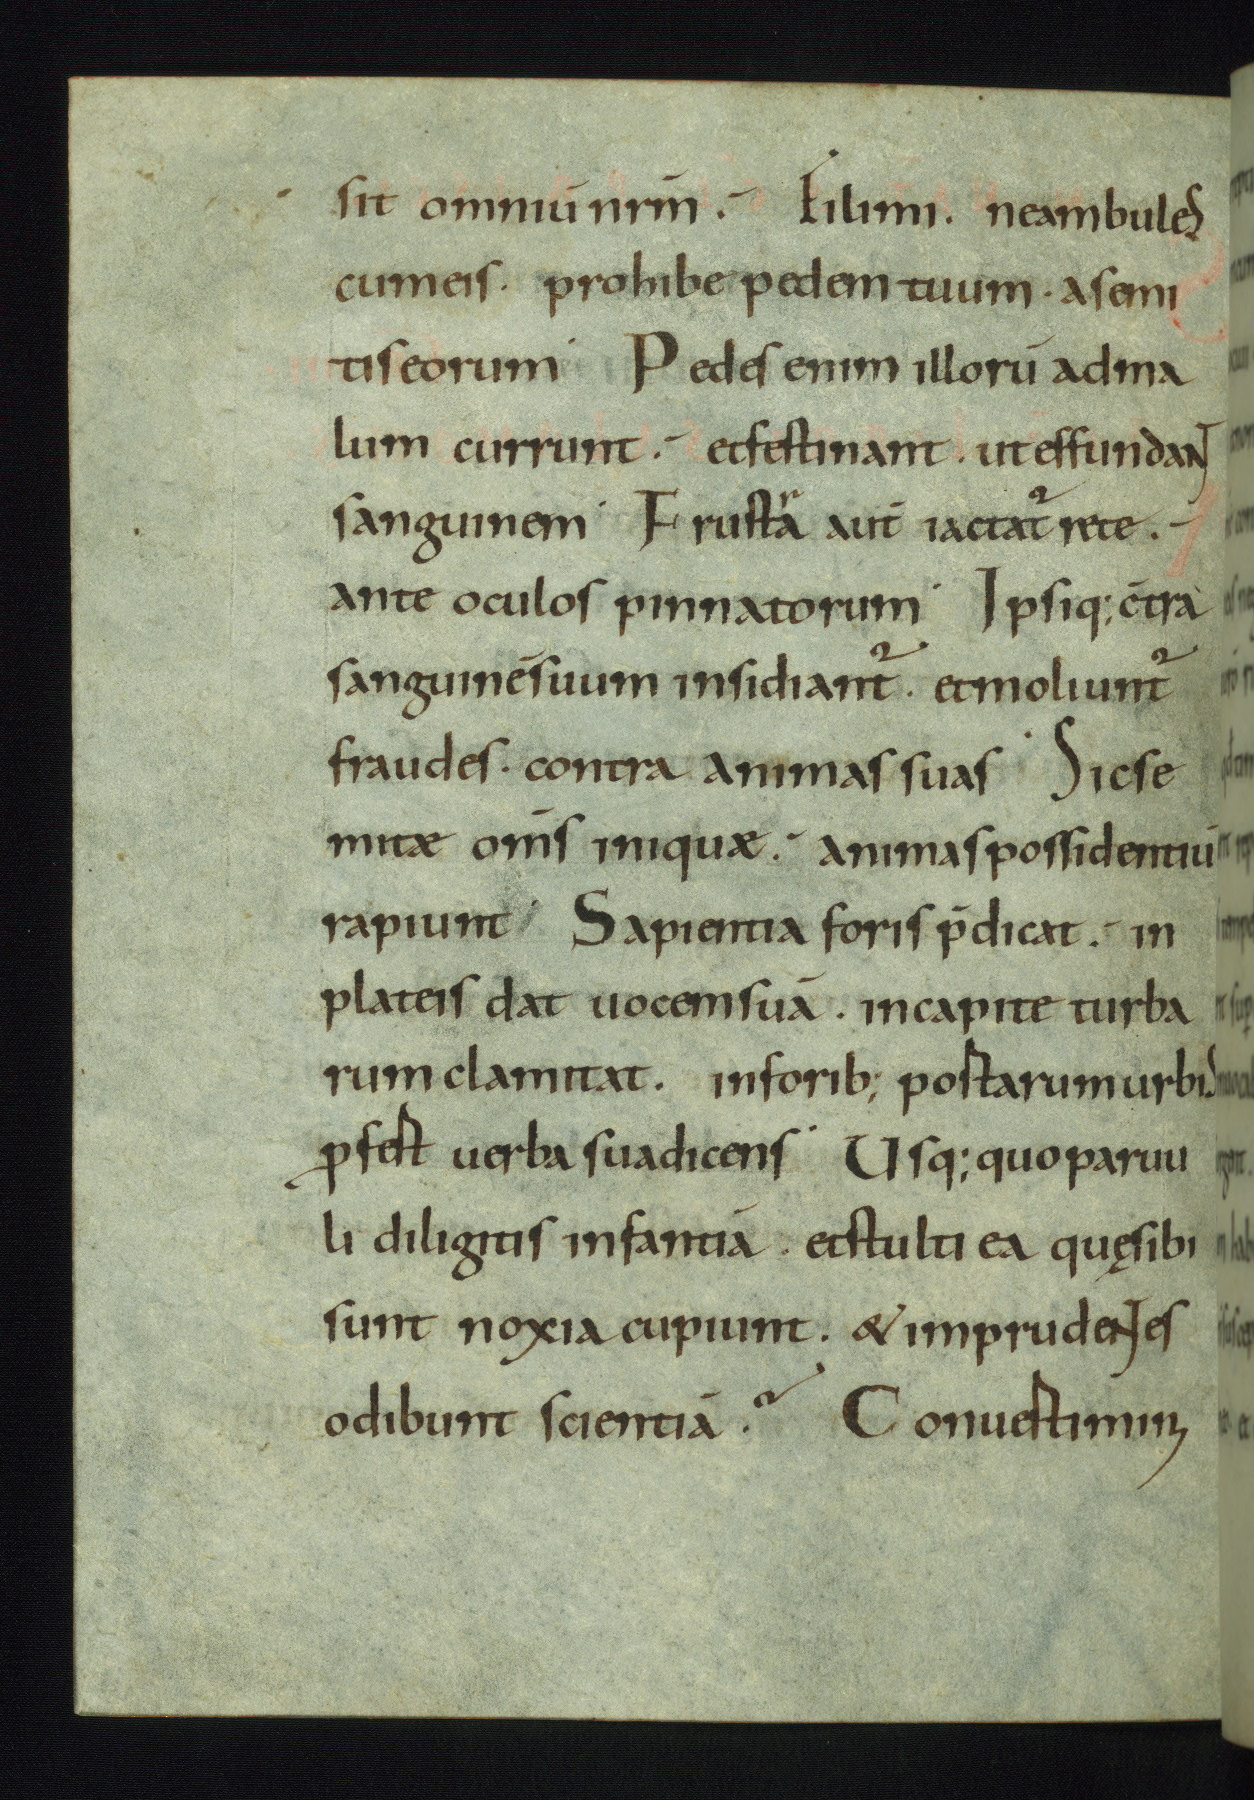 sit omniū nrm̄. Fili mi. ne ambules
cum eis. prohibe pedem tuum. a semi
tis eorum. Pedes enim illorū ad ma
lum currunt. et festinant. ut effundant
sanguinem. Frustra aut̄ iactat᷑ rete.
ante oculos pinnatorum. Ipsiq; c̄tra
sanguinē suum insidiant᷑. et moliunt᷑
fraudes. contra animas suas. Sic se
mitæ om̄s iniquæ. animas possidentiū
rapiunt. Sapientia foris p̄dicat. in
plateis dat uocem suā. in capite turba
rum clamitat. in forib; postarum urbis
ꝓfest uerba sua dicens. Usq; quo paruu
li diligitis infantiā. et stulti ea quę sibi
sunt noxia cupiunt. & imprudentes
odibunt scientiā. Conuestimin